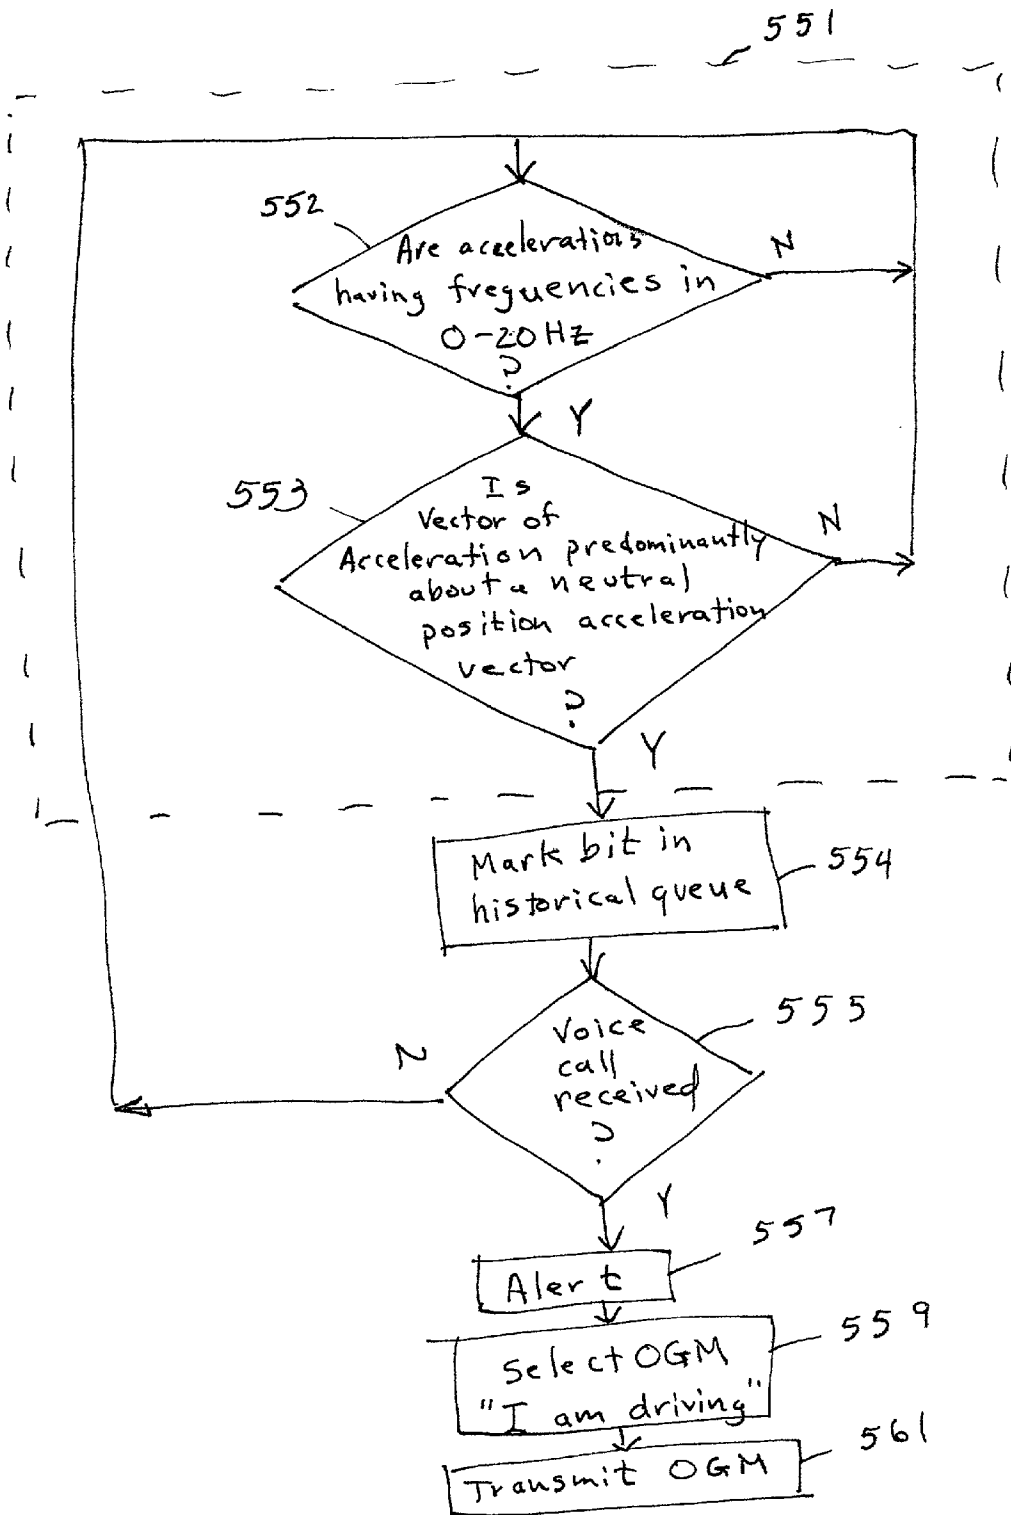 551
552
Are accelerations
having frequencies in
0-20Hz
?
N
Y
553
Is
Vector of
Acceleration predominantly
about a neutral
position acceleration
vector
?
N
Y
Mark bit in
historical queue
554
Voice
call
received
?
555
N
Y
Alert
557
Select OGM
"I am driving"
559
Transmit OGM
561